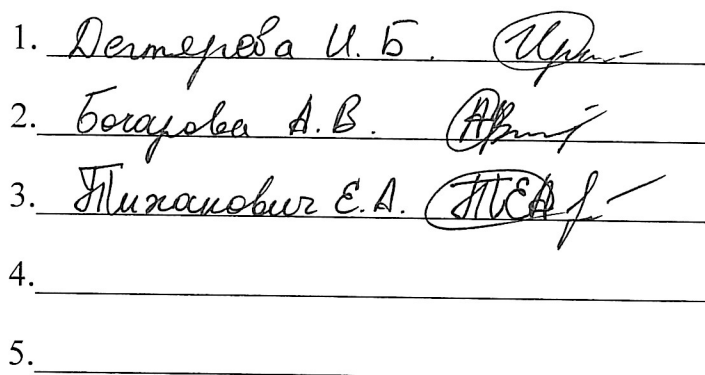 1. Дегтерева И. Б.
2. Бочарова А. В.
3. Тиханович Е. А. ТЕА
4.
5.